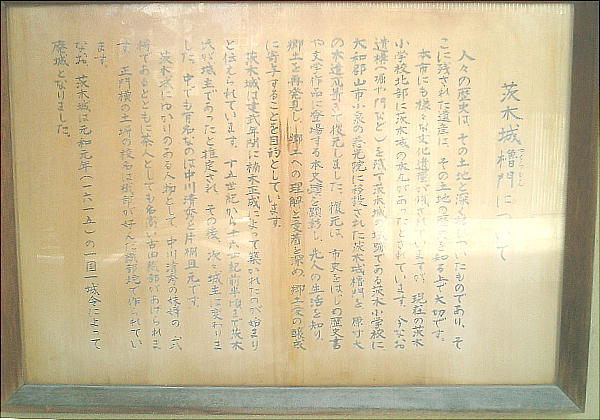 茨木城櫓門について
人々の歴史は、その土地と深く結びついたものであり、そ
こに残された遺産は、その土地の歴史を知る上で大切です。
本市にも様々な文化遺産が残されていますが、現在の茨木
小学校北部に茨木城の本丸があったとされています。今なお
遺構（堀や門など）を残す茨木城の城跡である茨木小学校に
大和郡山市小泉の慈光院に移築された茨木城櫓門を原寸大
の木造瓦葺きで復元しました。復元は、市史をはじめ歴史書
や文学作品に登場する本文跡を顕彰し、先人の生活を知り、
郷土を再発見し、郷土への理解と愛着を深め、郷土愛の醸成
に寄与することを目的としています。
茨木城は建武年間に楠木正成によって築かれたのが始まり
と伝えられています。十五世紀から十六世紀前半頃まで茨木
氏が城主であったと推定され、その後、次々城主は変わりま
した。中でも有名なのは中川清秀と片桐且元です。
茨木城にゆかりのある人物として、中川清秀の妹婿の、武
将であるとともに茶人としても名高い古田織部があげられま
す。正門横の土塀の校名は織部が好んだ織部焼で作られてい
ます。
なお、茨木城は元和元年（一六一五）の一国一城令によって
廃城となりました。